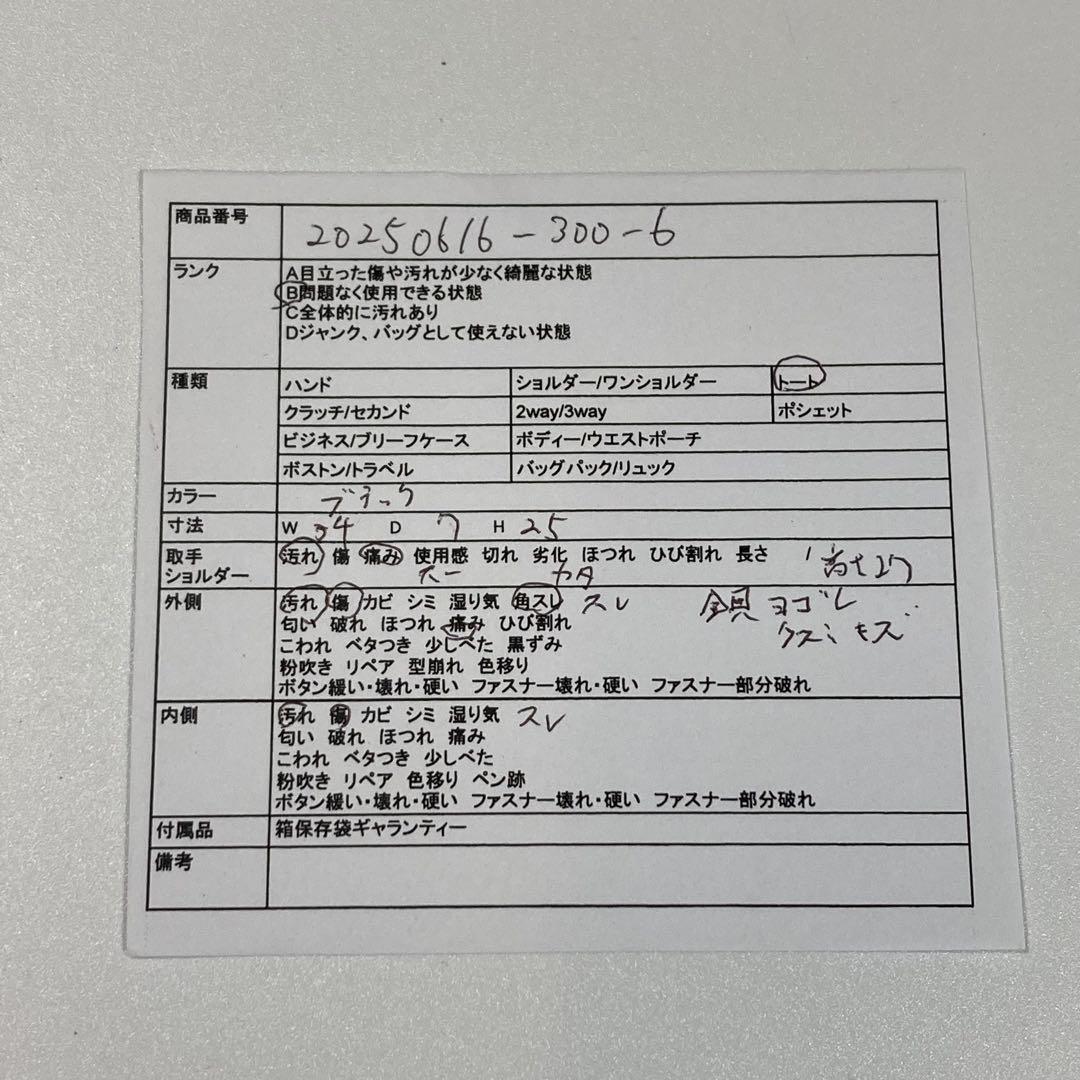 商品番号 20250616-300-6
ランク A目立った傷や汚れが少なく綺麗な状態
B問題なく使用できる状態
C全体的に汚れあり
Dジャンク、バッグとして使えない状態
種類 ハンド ショルダー/ワンショルダー トート
クラッチ/セカンド 2way/3way ポシェット
ビジネス/ブリーフケース ボディー/ウエストポーチ
ボストン/トラベル バッグパック/リュック
カラー ブラック
寸法 W 34 D 7 H 25
取手 汚れ 傷 痛み 使用感 切れ 劣化 ほつれ ひび割れ 長さ
ショルダー カタ 高さ27
外側 汚れ 傷 カビ シミ 湿り気 角スレ スレ 金具ヨゴレ
匂い 破れ ほつれ 痛み ひび割れ クスミ キズ
こわれ ベタつき 少しべた 黒ずみ
粉吹き リペア 型崩れ 色移り
ボタン緩い・壊れ・硬い ファスナー壊れ・硬い ファスナー部分破れ
内側 汚れ 傷 カビ シミ 湿り気 スレ
匂い 破れ ほつれ 痛み
こわれ ベタつき 少しべた
粉吹き リペア 色移り ペン跡
ボタン緩い・壊れ・硬い ファスナー壊れ・硬い ファスナー部分破れ
付属品 箱保存袋ギャランティー
備考